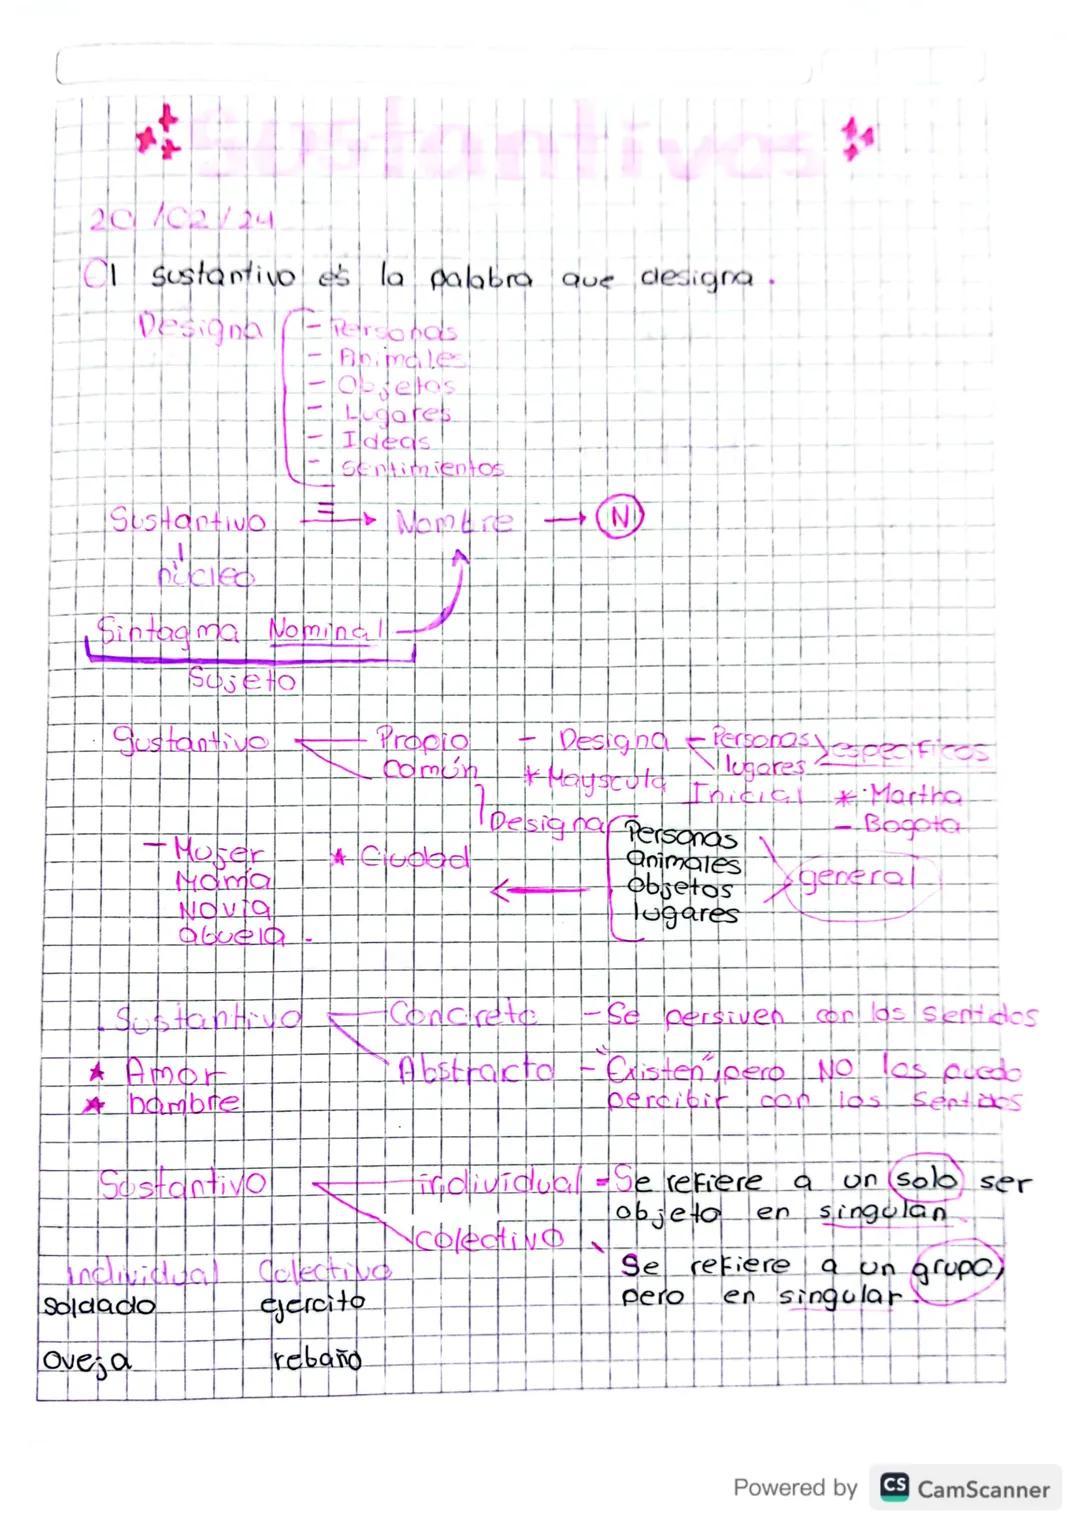 Sustantivos
20/02/24
El sustantivo es la palabra que designa.
Designa
- Personas
- Animales
- Objetos
- Lugares
- Ideas
- Sentimientos
Sustantivo ≡ → Nombre → N
núcleo
Sintagma Nominal
Sujeto
Sustantivo Propio - Designa - Personas especificos
lugares
común * Mayscula Inicial * Martha
- Bogota
Designa Personas
animales
Objetos
lugares
general
- Mujer * Ciudad
Mamá
Novia
abuela.
Sustantivo Concreto - Se persiven con los sentidos
* Amor Abstracto - "Existen", pero NO los puedo
* hambre percibir con los sentidos
Sustantivo individual - Se refiere a un solo ser
objeto en singular
colectivo
Se refiere a un grupo,
pero en singular.
Individual Colectivo
soldado ejercito
oveja rebaño
Powered by CS CamScanner